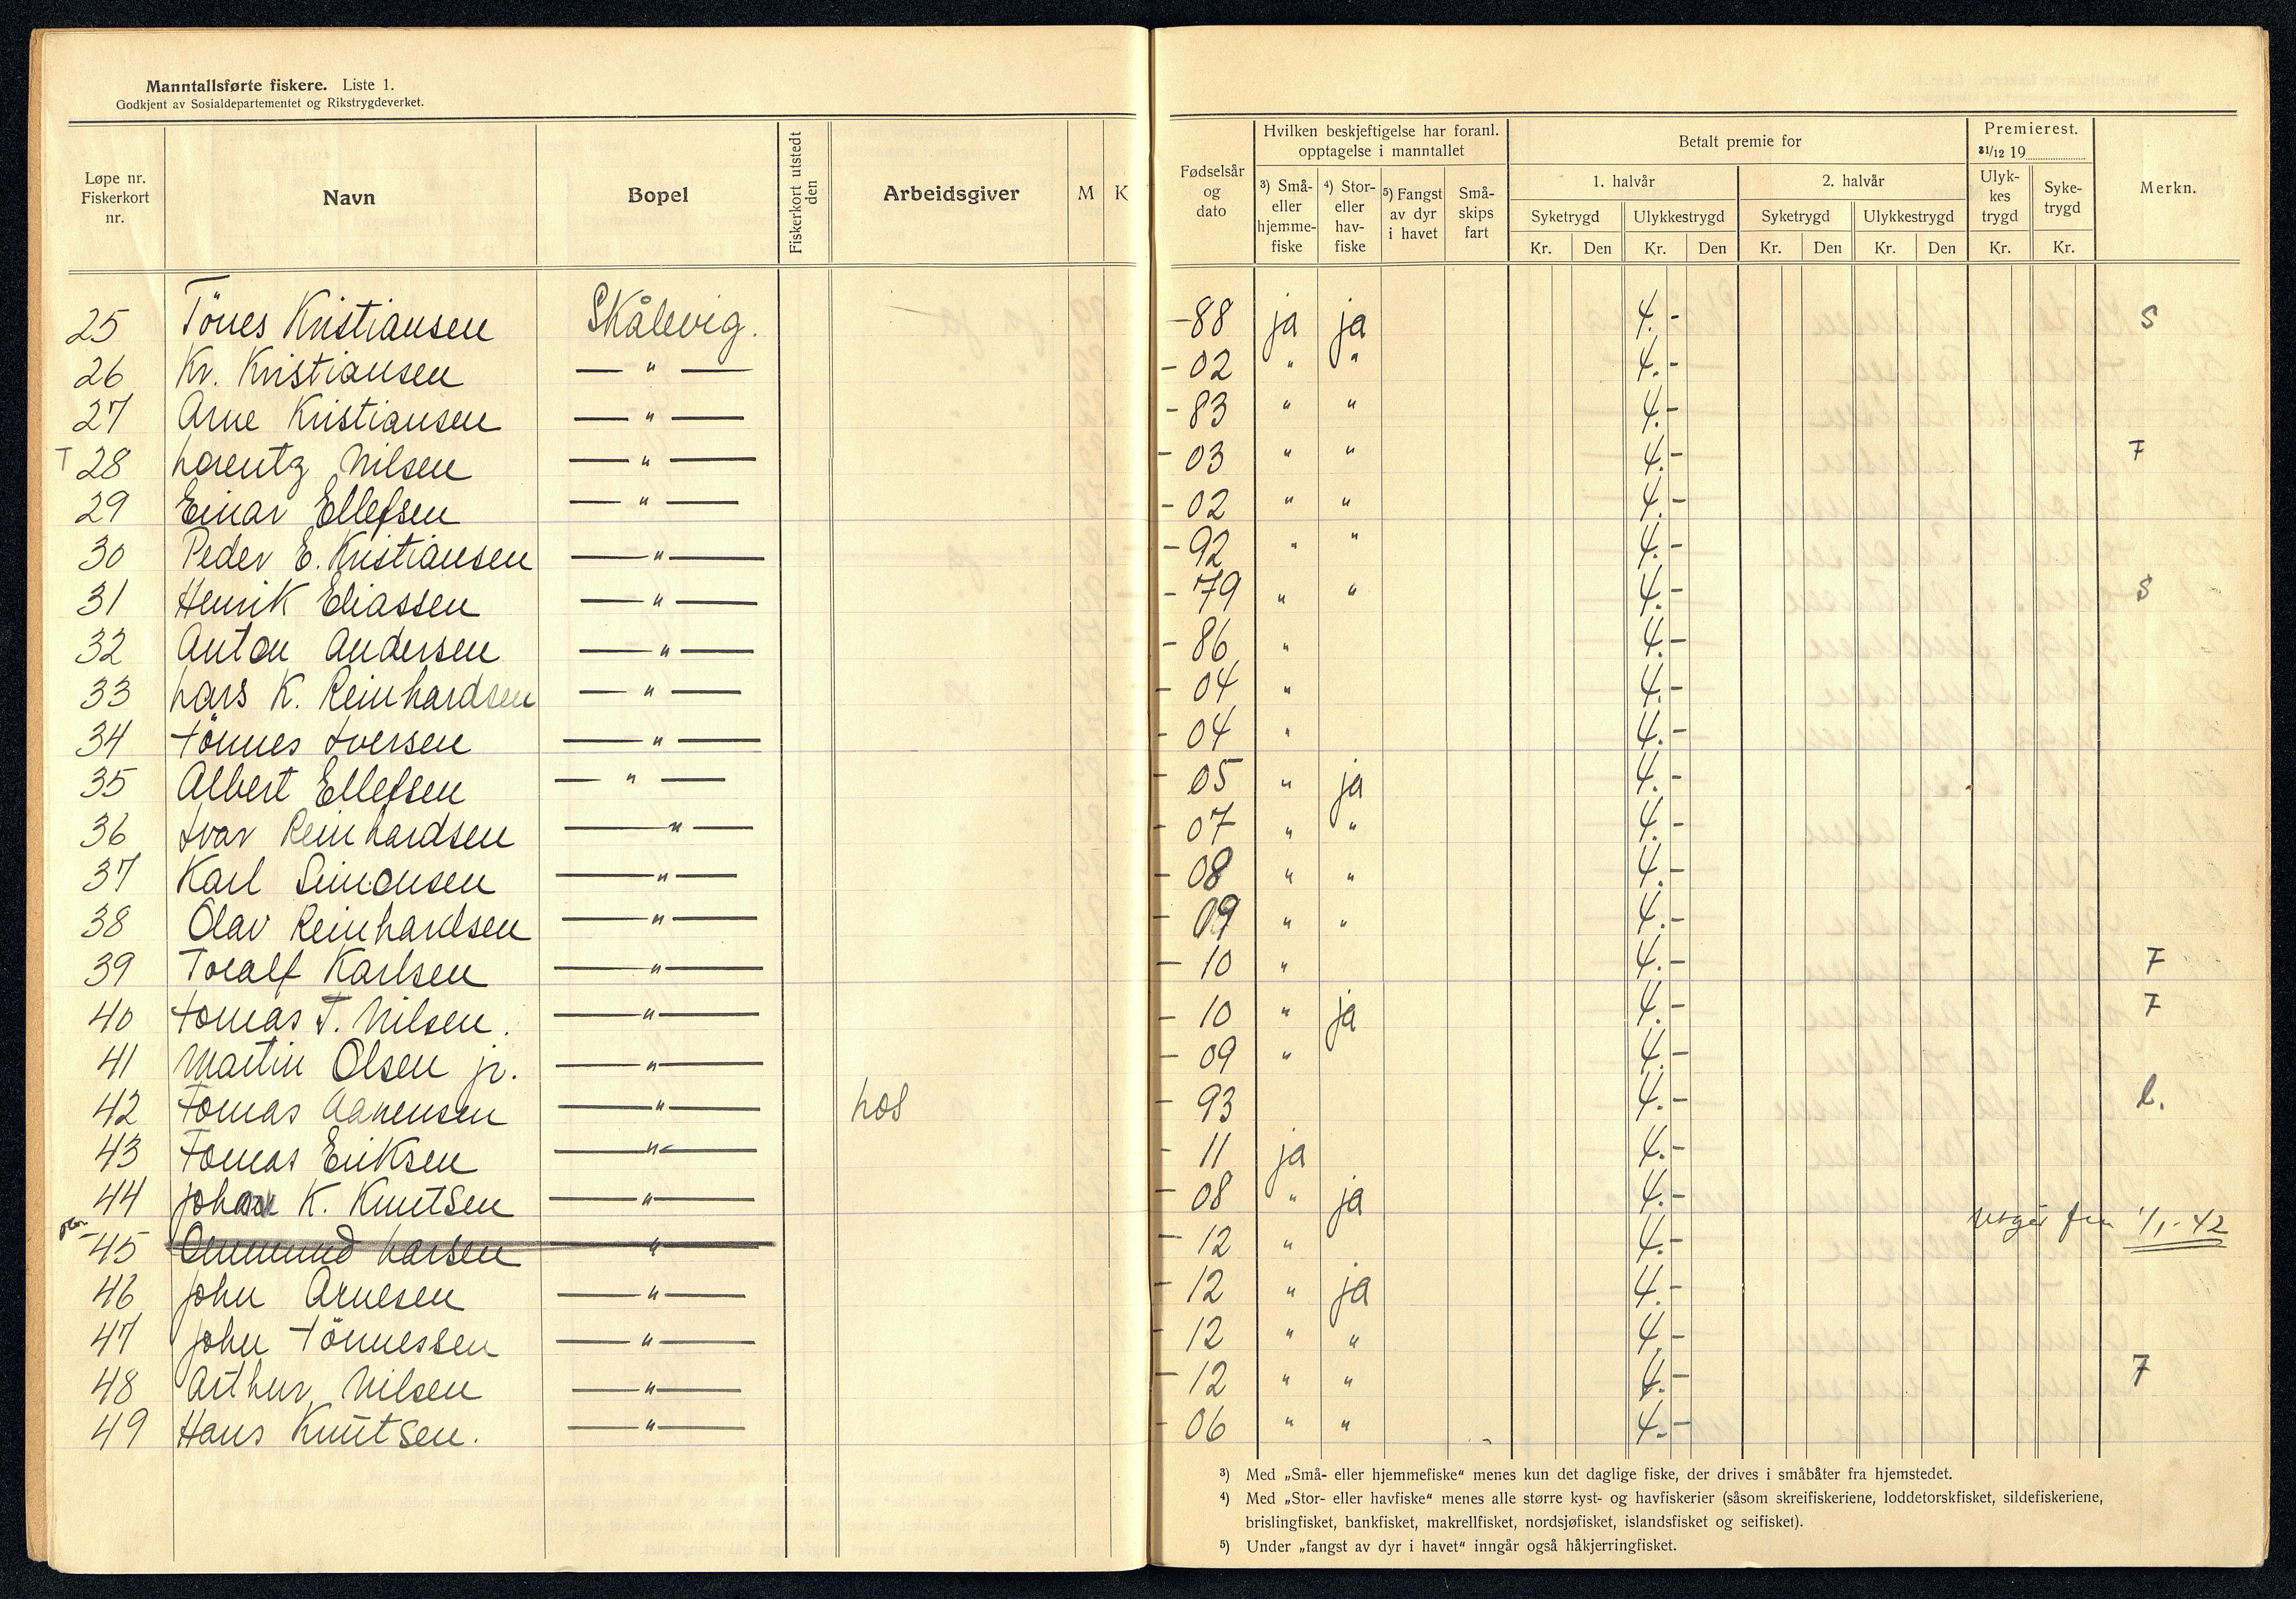 Manntallsførte fiskere. Liste 1.
Godkjent av Sosialdepartementet og Rikstrygdeverket.
Løpe nr. Fiskerkort nr. Navn Bopel Fiskerkort utstedt den Arbeidsgiver M K Fødselsår og dato
Hvilken beskjeftigelse har foranl. opptagelse i manntallet
³) Små- eller hjemme-fiske ⁴) Stor- eller hav-fiske ⁵) Fangst av dyr i havet Små-skips fart
Betalt premie for
1. halvår 2. halvår
Syketrygd Ulykkestrygd Syketrygd Ulykkestrygd
Kr. Den Kr. Den Kr. Den Kr. Den
Premierest. 31/12 19
Ulyk-kes trygd Syke-trygd
Kr. Kr.
Merkn.
25 Tönes Kristiansen Skålevig. -88 ja ja 4.- S
26 Kr. Kristiansen — " — - 02 " " 4.-
27 Arne Kristiansen — " — - 83 " " 4.-
T 28 Lorentz Nilsen — " — - 03 " " 4.- F
29 Einar Ellefsen — " — - 02 " " 4.-
30 Peder E. Kristiansen — " — - 92 " " 4.-
31 Henrik Eliassen — " — - 79 " " 4.- S
32 Anton Andersen — " — - 86 " 4.-
33 Lars K. Reinhardsen — " — - 04 " 4.-
34 Tönnes Iversen — " — - 04 " 4.-
35 Albert Ellefsen — " — - 05 " ja 4.-
36 Ivar Reinhardsen — " — - 07 " " 4.-
37 Karl Simonsen — " — - 08 " " 4.-
38 Olav Reinhardsen — " — - 09 " " 4.-
39 Toralf Karlsen — " — - 10 " 4.- F
40 Tomas T. Nilsen. — " — - 10 " ja 4.- F
41 Martin Olsen jr. — " — - 09 " 4.-
42 Tomas Aanensen — " — hos - 93 4.- l.
43 Tomas Eriksen — " — - 11 ja 4.-
44 Johan K. Knutsen — " — - 08 " ja 4.-
45 Ommund Larsen — " — - 12 " 4.- utgår fra 1/1-42
46 John Arnesen — " — - 12 " ja 4.-
47 John Tönnessen — " — - 12 " " 4.-
48 Arthur Nilsen — " — - 12 " " 4.- F
49 Hans Knutsen. — " — - 06 " " 4.-
³) Med „Små- eller hjemmefiske" menes kun det daglige fiske, der drives i småbåter fra hjemstedet.
⁴) Med „Stor- eller havfiske" menes alle større kyst- og havfiskerier (såsom skreifiskeriene, loddetorskfisket, sildefiskeriene,
brislingfisket, bankfisket, makrellfisket, nordsjøfisket, islandsfisket og seifisket).
⁵) Under „fangst av dyr i havet" inngår også håkjerringfisket.